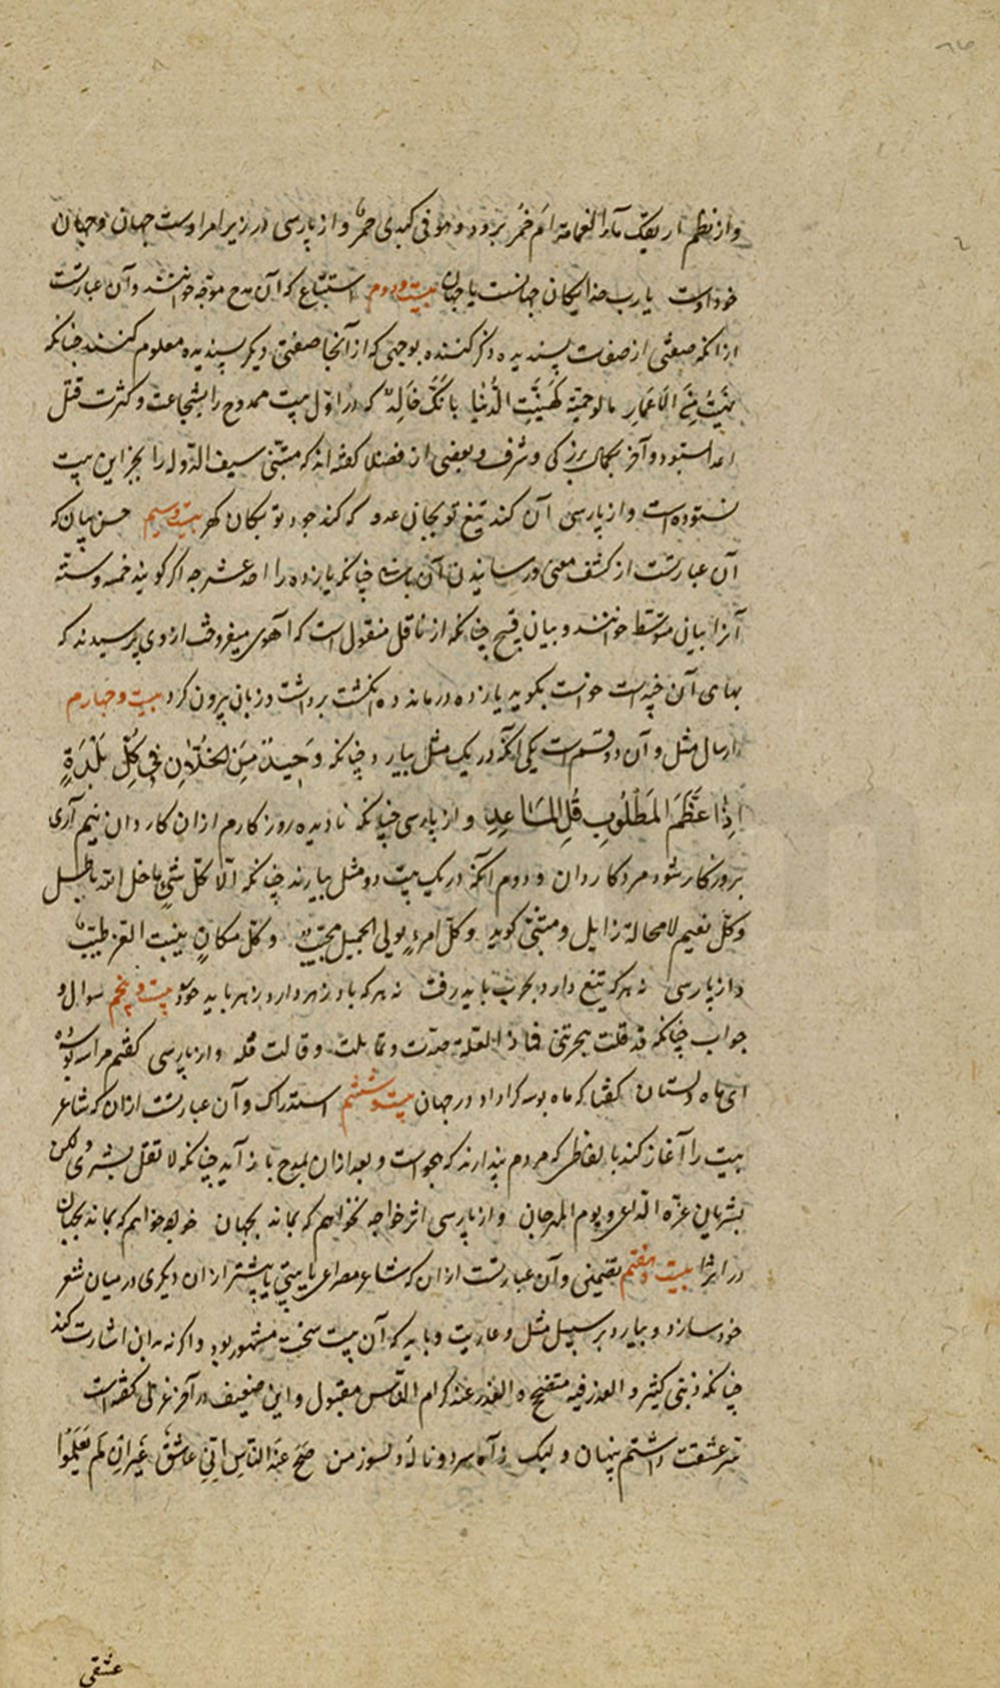 و از نظم اریقک ام ماء الغمامة ام خمر برود و هو فی کبدی جمر و از پارسی در زیر امر اوست جهان و جهان
خود اوست یا رب خدایگان جهانست یا جهان بیست و دوم استتباع که آن مدح موجه خوانند و آن عبارتست
از آنکه صفتی از صفات پسندیده ذکر کننده بوجهی که از آنجا صفتی دیگر پسندیده معلوم کنند چنانکه
نهبت من الاعمار ما لو حویته لهنیت الدنیا بانک خالد که در اول بیت ممدوح را بشجاعت و کثرت قتل
اعدا ستود و آخر بکمال بزرگی و شرف و بعضی از فضلا گفته‌اند که متنبی سیف الدوله را بجز این بیت
نستوده است و از پارسی آن کند تیغ تو بجان عدو که کند جود تو بکان گهر بیست و سیم حسن بیان که
آن عبارتست از کشف معنی و رسانیدن آن چنانکه یازده را احد عشر چه اگر گویند خمسه و سته
آنرا بیان متوسط خوانند و بیان قبیح چنانکه از باقل منقول است که آهوی میفروخت از وی پرسیدند که
بهای آن چیست خواست بگوید یازده درماند ده انگشت برداشت و زبان بیرون کرد بیست و چهارم
ارسال مثل و آن دو قسم است یکی آنکه در یک مثل بیارد چنانکه وَحِیدٌ مِنَ الخُلّانِ فی کُلِّ بَلْدَةٍ
اِذا عَظُمَ المَطْلُوبُ قَلَّ المُسَاعِدُ و از پارسی چنانکه نادیده روزگارم ازان کاردان نیم آری
بروزگار شود مرد کاردان و دوم آنکه در یک بیت دو مثل بیارند چنانکه الا کل شیء ما خلا الله باطل
و کل نعیم لا محالة زایل و متنبی گوید و کل امرء یولی الجمیل محبب و کل مکان ینبت العز طیب
و از پارسی نه هر که تیغ دارد بحرب باید رفت نه هر که پادزهر دارد زهر باید خورد بیست و پنجم سوال و
جواب چنانکه قد قلت و قالت و از پارسی گفتم مرا سه بوسه ده
ای ماه دلستان گفتا که ماه بوسه کرا داد در جهان بیست و ششم استدراک و آن عبارتست ازان که شاعر
بیت را آغاز کند بالفاظی که مردم پندارند که هجو است و بعد ازان بمدح باز آید چنانکه لا تقل بشری ولکن
بشریان غرة الداعی و یوم المهرجان و از پارسی اثر خواجه نخواهم که بماند بجهان خواجه خواهم که بماند بجهان
در اثر بیست و هفتم تضمین و آن عبارتست ازان که شاعر مصراعی یا بیتی یا بیشتر ازان دیگری در میان شعر
خود سازد و بیارد بر سبیل مثل و عاریت و باید که آن بیت سخت مشهور بود و اگر نه بدان اشارت کند
چنانکه ذنبی کثیر و العذر فیه متضح و العذر عند کرام الناس مقبول و این ضعیف در آخر غزلی گفته است
سر عشقت داشتم پنهان ولیک ز آه سرد و نالهٔ دلسوز من صَحَّ عِندَ النّاسِ اَنّی عاشقٌ غَیرَ اَن لَم یَعلَمُوا
عشقی